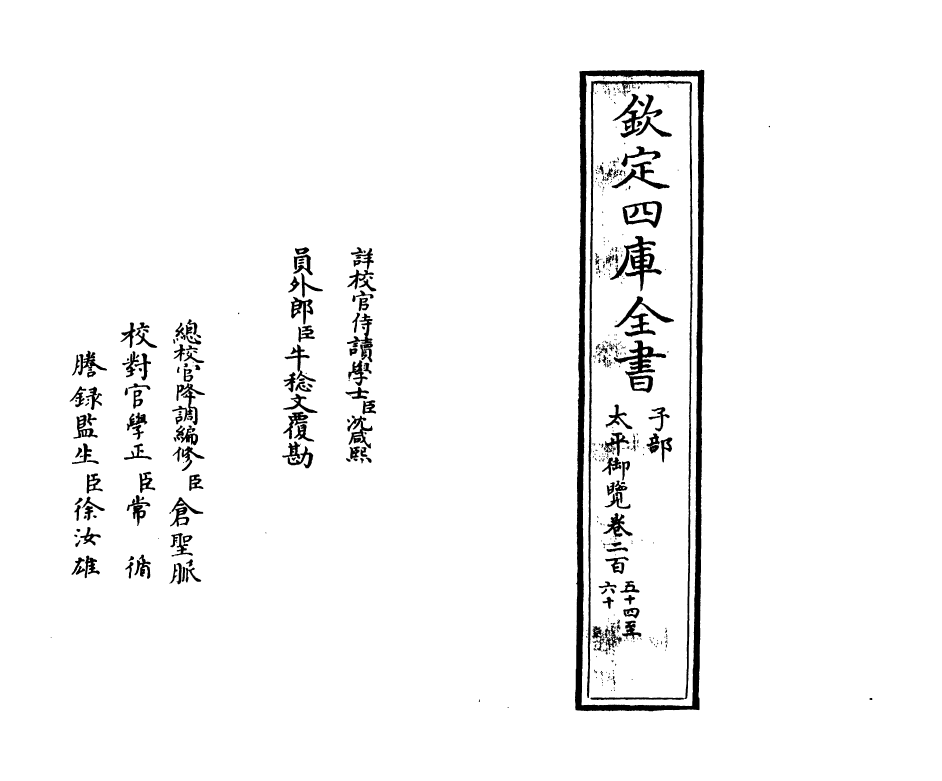 欽定四庫全書
子部
太平御覽卷二百
五十四至
六十
詳校官侍讀學士臣沈咸熙
員外郎臣牛稔文覆勘
總校官降調編修臣倉聖脈
校對官學正臣常循
謄録監生臣徐汝雄